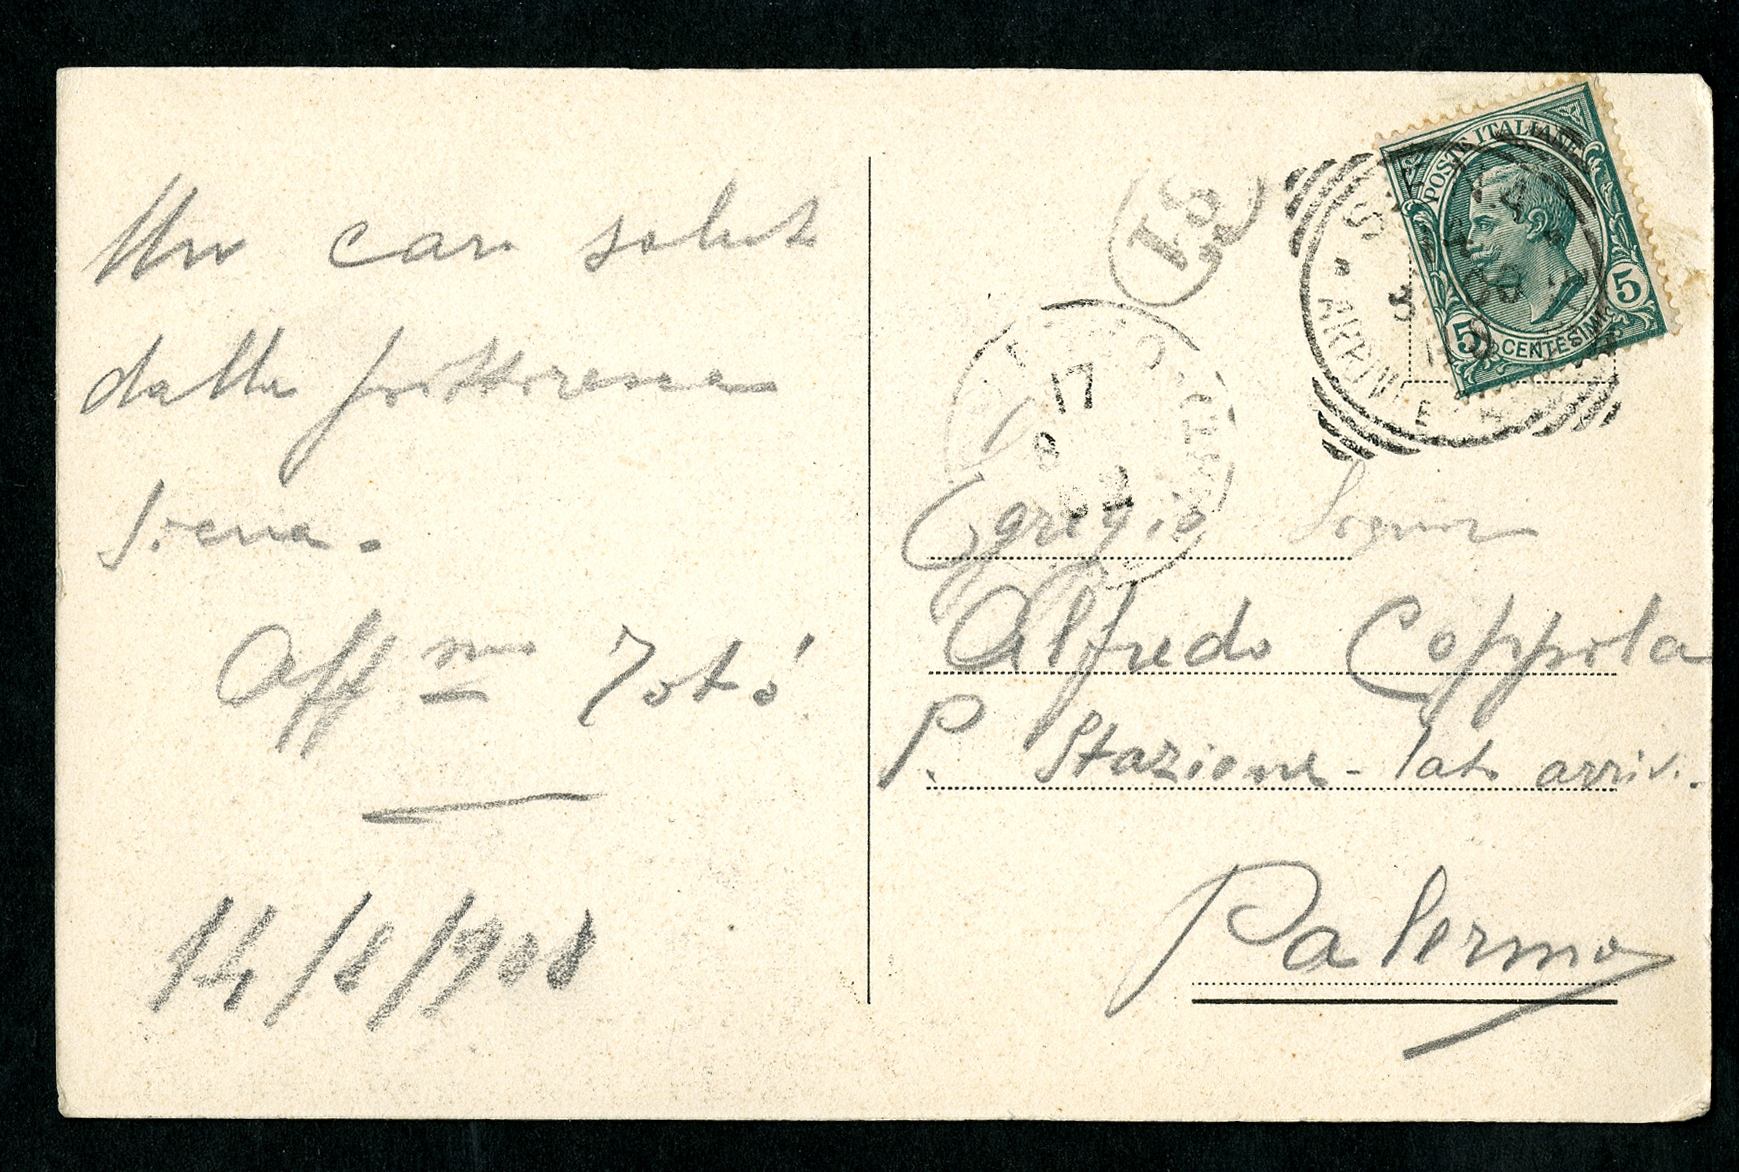 Un caro saluto
dalla pittoresca
Siena.
Aff mo Totò
14/8/908
91
17
8
POSTE ITALIANE
5 5
CENTESIMI
Egregio Signor
Alfredo Coppola
P. Stazione - lato arrivi.
Palermo